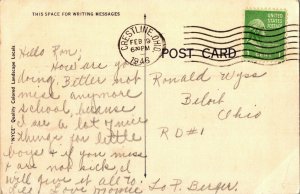 THIS SPACE FOR WRITING MESSAGES
CRESTLINE, OHIO
FEB 19
6 PM
1946
UNITED STATES
POSTAGE
POST CARD
Hello Ron;
How are you
doing. Better not
miss anymore
school, because
I see a lot of nice
things for little
boys & if you miss
& are not sick, I
will give it all to
Love
Ronald Wyss
Beloit
Ohio
RD#1
L. P. Berger
"NYCE" Quality Colored Landscape Locals